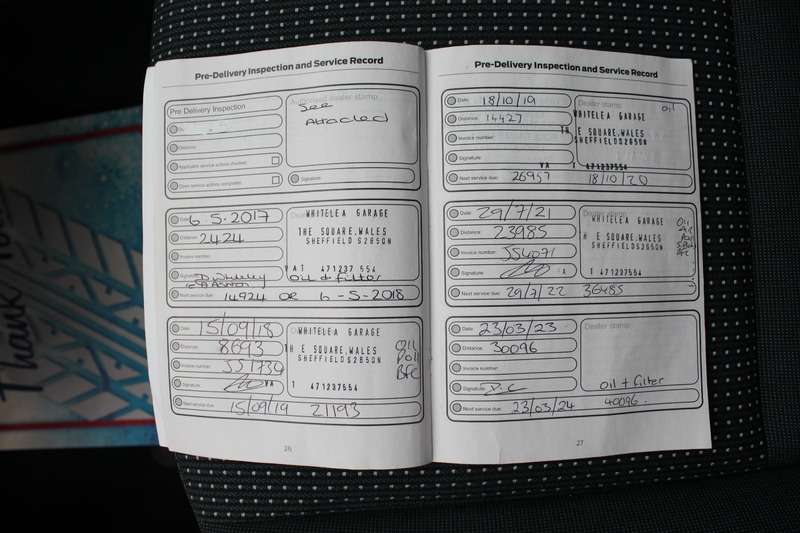 Pre-Delivery Inspection and Service Record
Pre Delivery Inspection
Authorised dealer stamp
See
Attached
Distance
Applicable service actions checked
Open service actions completed
Signature
Date: 6-5-2017
WHITELEA GARAGE
Distance: 2424
THE SQUARE,WALES
SHEFFIELD S26 5QN
Invoice number:
VAT 471237 556
Signature
Oil & filter
Next service due: 14924 OR 6-5-2018
Date: 15/09/18
WHITELEA GARAGE
Distance: 8693
TH E SQUARE,WALES
SHEFFIELD S26 5QN
Oil
Poll
BFC
Invoice number: 551730
Signature
VA T 471237556
Next service due: 15/09/19 21193
26
Pre-Delivery Inspection and Service Record
Date: 18/10/19
Dealer stamp:
oil
Distance: 14427
WHITELEA GARAGE
Invoice number:
TH E SQUARE,WALES
SHEFFIELD S26 5QN
Signature
VA T 471237556
Next service due: 26957 18/10/20
Date: 29/7/21
WHITELEA GARAGE
Oil
Distance: 23985
TH E SQUARE,WALES
SHEFFIELD S26 5QN
Invoice number: 554071
Signature
VA T 471237 556
Next service due: 29/7/22 36485
Date: 23/03/23
Dealer stamp:
Distance: 30096
Invoice number:
Signature
Oil + filter
Next service due: 23/03/24 40096.
27
Thank You